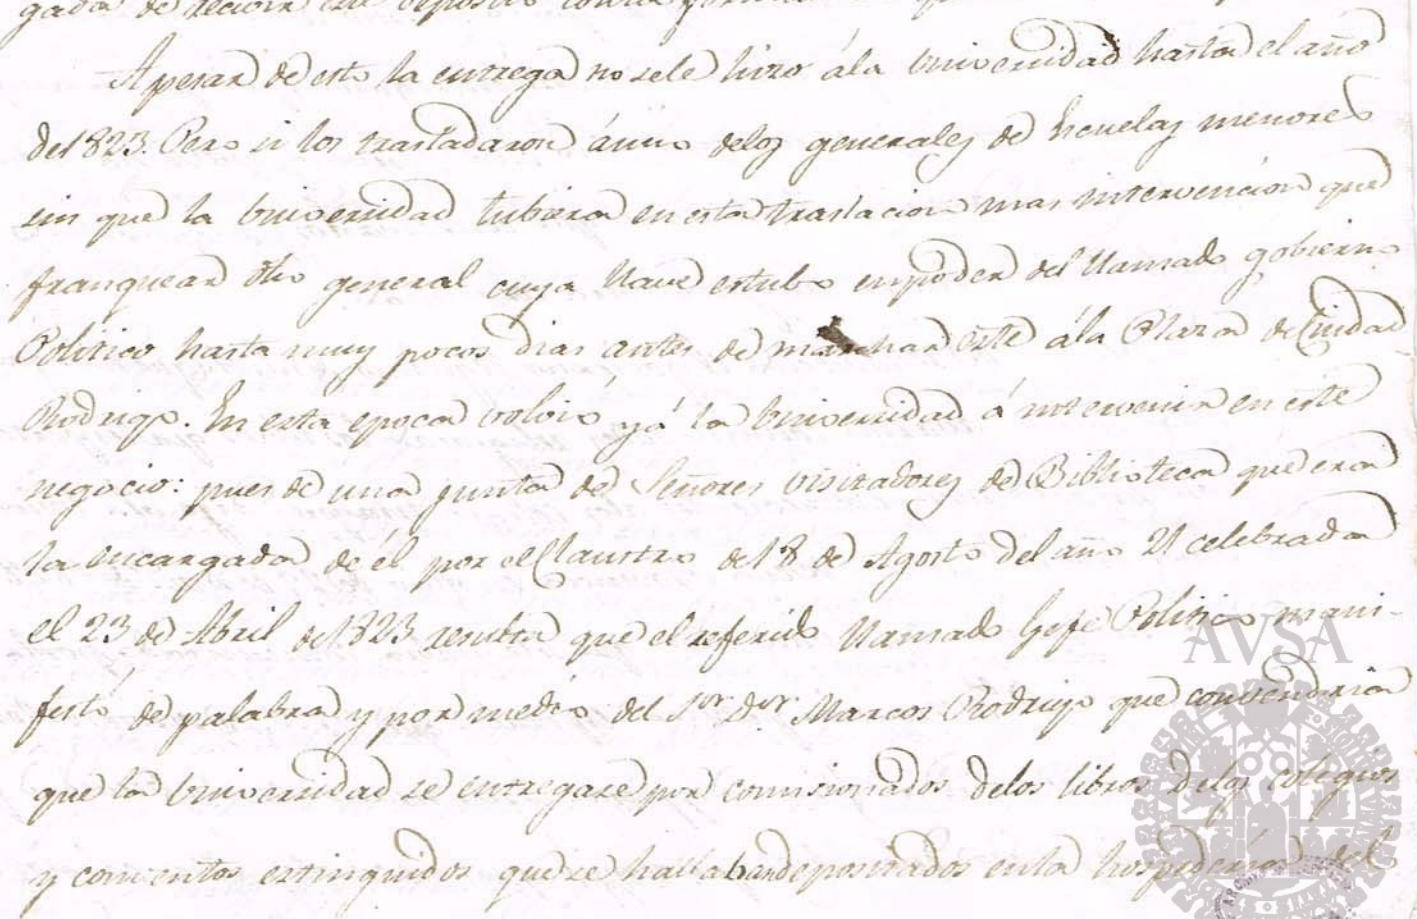 gada de recivir este deposito
Apesar de esto la entrega no sele hizo ála Universidad hasta el año
del 823. Pero si los trasladaron á uno delos generales de Escuelas menores
sin que la Universidad tubiera en esta traslacion mas intervencion que
franquear dho general cuya llave estubo enpoder del llamado gobierno
Politico hasta muy pocos dias antes de marchar éste ála Plaza de Ciudad-
Rodrigo. En esta epoca volvió yá la Universidad á intervenir en este
negocio: pues de una junta de Señores visitadores de Biblioteca que era
la encargada de él por el Claustro del 8 de Agosto del año 21 celebrada
el 23 de Abril del 823 resulta que el referido llamado Gefe Politico mani-
festó de palabra y por medio del Sor Dor Marcos Rodrigo que convendria
que la Universidad se entregase por comisionados delos libros delos colegios
y conventos extinguidos que se hallaban depositados enla hospederia del
AVSA